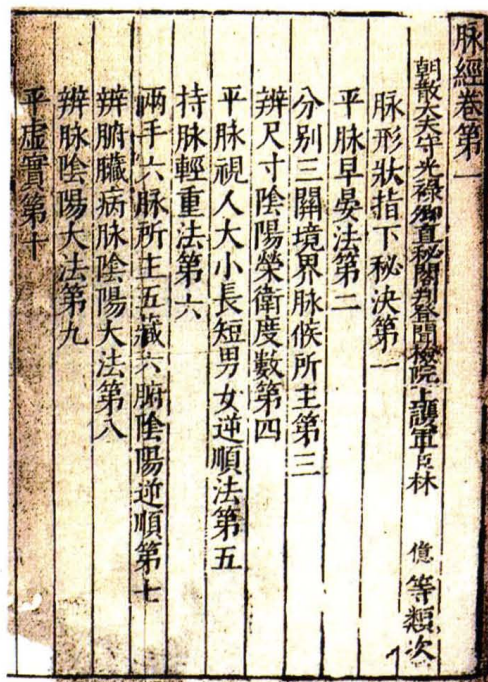 脉經卷第一
朝散大夫守光祿卿直秘閣判登聞檢院上護軍臣林億等類次
脉形狀指下秘決第一
平脉早晏法第二
分别三關境界脉候所主第三
辨尺寸陰陽榮衛度數第四
平脉視人大小長短男女逆順法第五
持脉輕重法第六
兩手六脉所主五藏六腑陰陽逆順第七
辨腑臟病脉陰陽大法第八
辨脉陰陽大法第九
平虛實第十